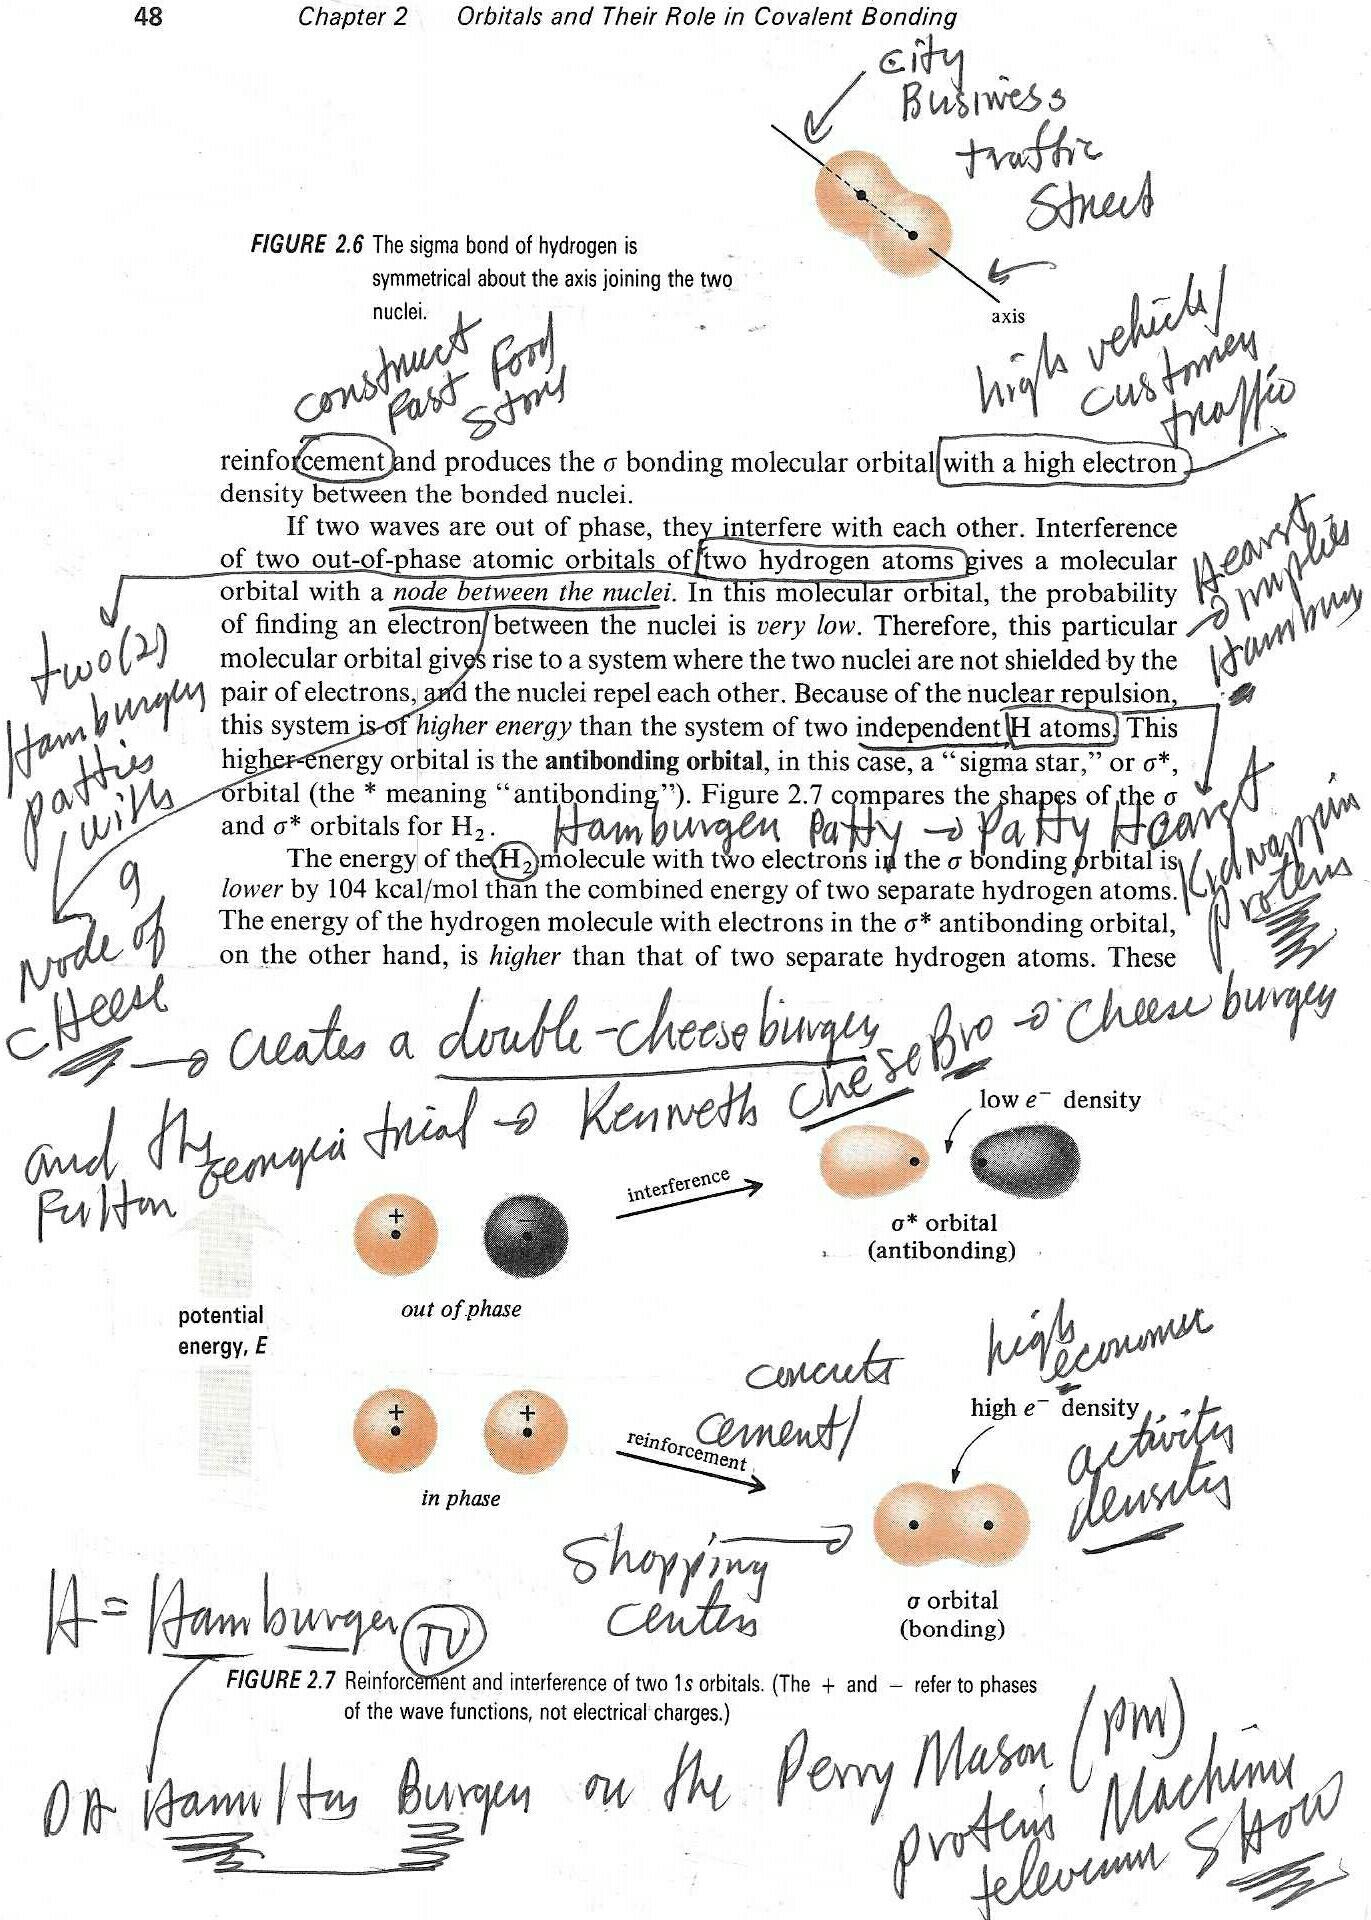 48 Chapter 2 Orbitals and Their Role in Covalent Bonding
City
Business
traffic
Street
FIGURE 2.6 The sigma bond of hydrogen is
symmetrical about the axis joining the two
nuclei.
axis
construct
Fast Food
Stores
high vehicle/
customer
traffic
reinforcement and produces the σ bonding molecular orbital with a high electron
density between the bonded nuclei.
If two waves are out of phase, they interfere with each other. Interference
of two out-of-phase atomic orbitals of two hydrogen atoms gives a molecular
orbital with a node between the nuclei. In this molecular orbital, the probability
of finding an electron between the nuclei is very low. Therefore, this particular
molecular orbital gives rise to a system where the two nuclei are not shielded by the
pair of electrons, and the nuclei repel each other. Because of the nuclear repulsion,
this system is of higher energy than the system of two independent H atoms. This
higher-energy orbital is the antibonding orbital, in this case, a “sigma star,” or σ*,
orbital (the * meaning “antibonding”). Figure 2.7 compares the shapes of the σ
and σ* orbitals for H₂.
Hamburger Patty → Patty Hearst
Hearst
→ implies
Hamburg
Kidnappin
protens
two (2)
Hamburger
patties
with
a
Node of
CHeese
The energy of the H₂ molecule with two electrons in the σ bonding orbital is
lower by 104 kcal/mol than the combined energy of two separate hydrogen atoms.
The energy of the hydrogen molecule with electrons in the σ* antibonding orbital,
on the other hand, is higher than that of two separate hydrogen atoms. These
→ creates a double-cheeseburger
and the Fulton Georgia trial → Kenneth CheseBro → Cheeseburger
low e⁻ density
interference
+ −
σ* orbital
(antibonding)
out of phase
potential
energy, E
concrete
cement/
high
economic
activity
density
high e⁻ density
+ +
reinforcement
in phase
Shopping
centers
σ orbital
(bonding)
H = Hamburger TV
FIGURE 2.7 Reinforcement and interference of two 1s orbitals. (The + and − refer to phases
of the wave functions, not electrical charges.)
DA Hamilton Burger on the Perry Mason (PM)
protein Machine
SHOW